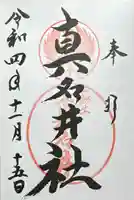 奉拝
真名井社
令和四年十一月十五日